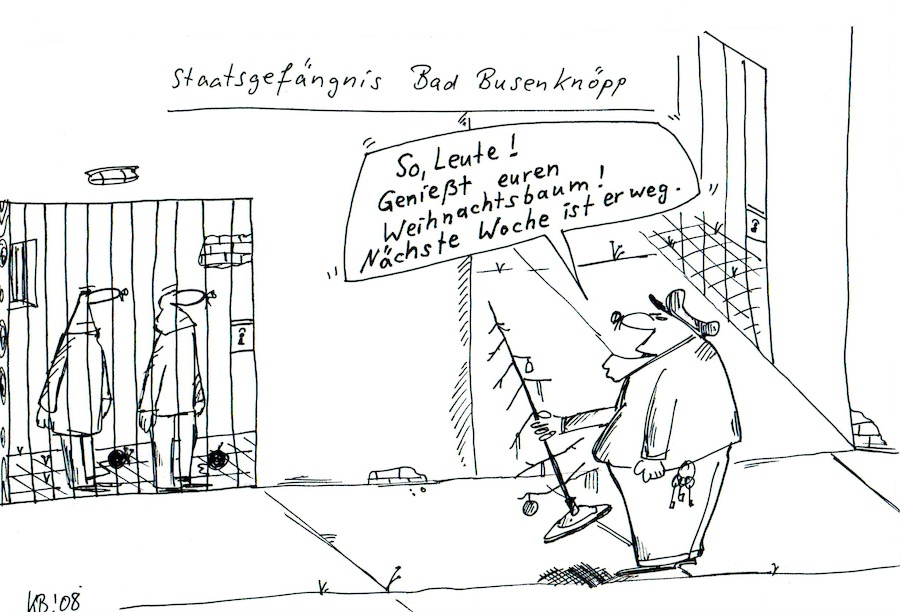 Staatsgefängnis Bad Busenknöpp
So, Leute!
Genießt euren
Weihnachtsbaum!
Nächste Woche ist er weg.
KB!08